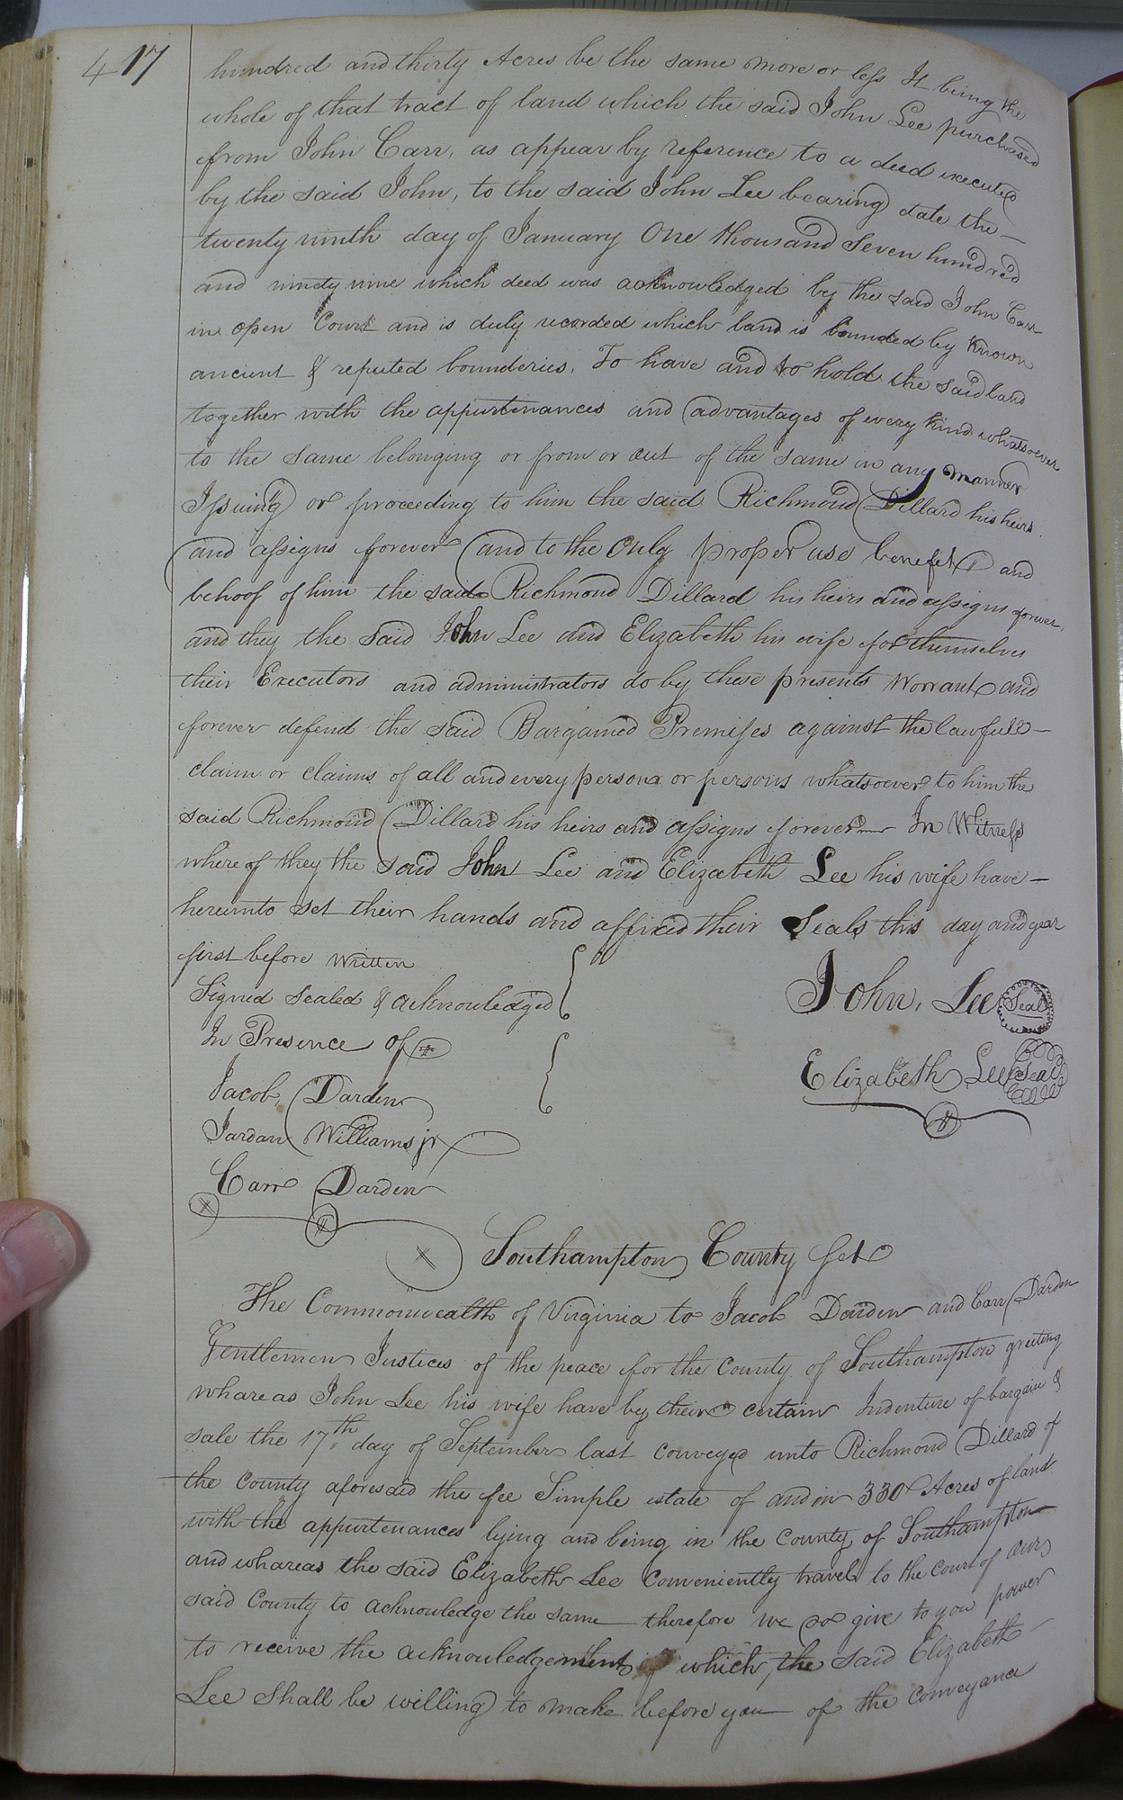 417
hundred and thirty Acres be the same more or less It being the
whole of that tract of land which the said John Lee purchased
from John Carr, as appear by reference to a deed executed
by the said John, to the said John Lee bearing date the
twenty ninth day of January One thousand Seven hundred
and ninety nine which deed was acknowledged by the said John Carr
in open Court and is duly recorded which land is bounded by known
ancient & reputed bounderies, To have and to hold the said land
together with the appurtenances and advantages of every kind whatsoever
to the same belonging or from or out of the same in any manner
Issuing or proceeding to him the said Richmond Dillard his heirs
and assigns forever and to the Only proper use benefit and
behoof of him the said Richmond Dillard his heirs and assigns forever
and they the said John Lee and Elizabeth his wife for themselves
their Executors and administrators do by these presents Worrant and
forever defend the said Bargained Premises against the lawfull
claim or claims of all and every persona or persons whatsoever to him the
said Richmond Dillard his heirs and assigns forever In Witness
where of they the said John Lee and Elizabeth Lee his wife have
hereunto set their hands and affixed their Seals this day and year
first before written
Signed Sealed & acknowledged
In Presence of
John, Lee Seal
Elizabeth Lee Seal
Jacob, Darden
Jordan Williams jr
Carr Darden
Southampton County Sct
The Commonwealth of Virginia to Jacob Darden and Carr Darden
Gentlemen Justices of the peace for the County of Southampton greeting
whareas John Lee his wife have by their certain Indenture of bargain &
sale the 17th day of September last conveyed unto Richmond Dillard of
the County aforesaid the fee Simple estate of and in 330 Acres of land
with the appurtenances lying and being in the County of Southampton
and whareas the said Elizabeth Lee Conveniently travel to the court of our
said County to acknowledge the same therefore we do give to you power
to receive the acknowledgement of which, the said Elizabeth
Lee Shall be willing to make before you of the conveyance